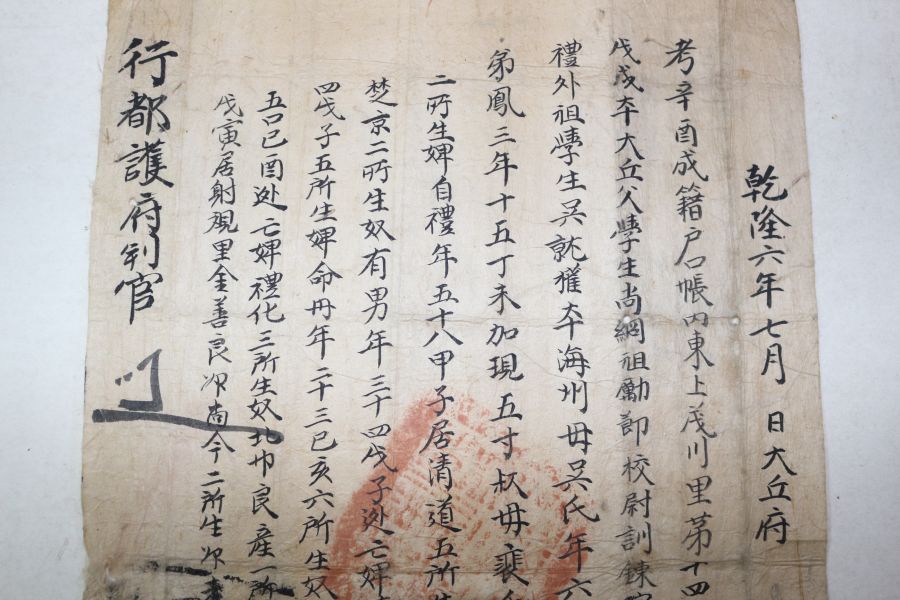 乾隆六年七月 日大丘府
考辛酉成籍戶口帳內東上茂川里第十四
戊戌夲大丘父學生尚絅祖勵節校尉訓鍊
禮外祖學生吳就獲夲海州母吳氏年六
弟鳳三年十五丁未加現五寸叔母裵
二所生婢自禮年五十八甲子居淸道五所
楚京二所生奴有男年三十四戊子迯亡婢
四戊子五所生婢命冊年二十三己亥六所生奴
五口己酉迯亡婢禮化三所生奴 良産一所
戊寅居射覌里金善良次 今二所生次
行都護府判官